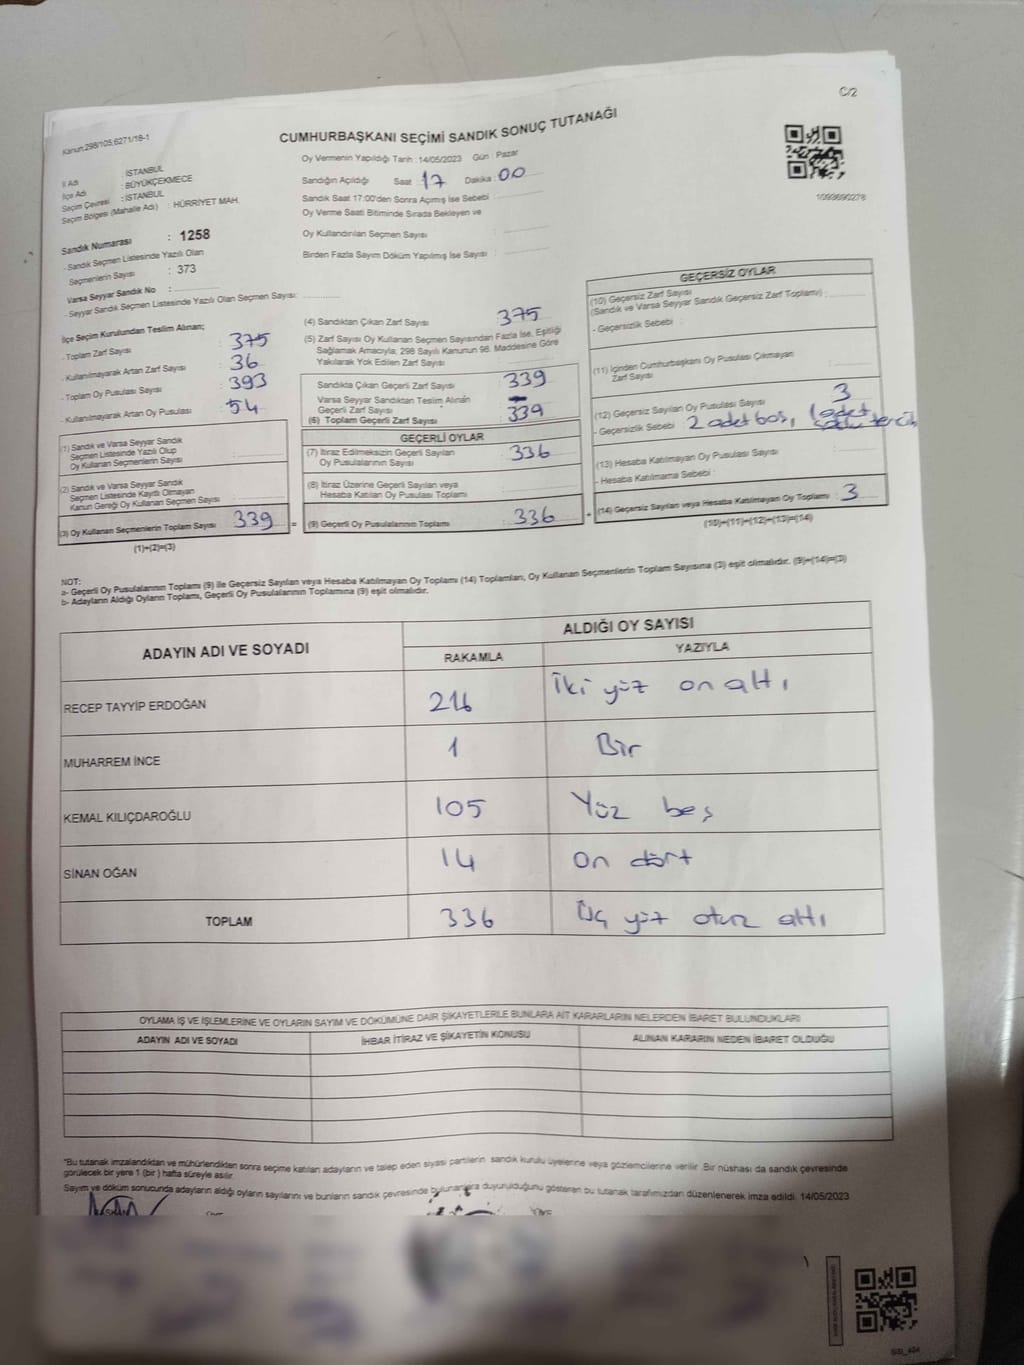 C/2
Kanun:298/105;6271/18-1
CUMHURBAŞKANI SEÇİMİ SANDIK SONUÇ TUTANAĞI
1093690278
İl Adı : İSTANBUL
İlçe Adı : BÜYÜKÇEKMECE
Seçim Çevresi : İSTANBUL
Seçim Bölgesi (Mahalle Adı) : HÜRRİYET MAH.
Sandık Numarası : 1258
- Sandık Seçmen Listesinde Yazılı Olan
Seçmenlerin Sayısı : 373
Varsa Seyyar Sandık No :
- Seyyar Sandık Seçmen Listesinde Yazılı Olan Seçmen Sayısı:
Oy Vermenin Yapıldığı Tarih : 14/05/2023 Gün : Pazar
Sandığın Açıldığı Saat 17 Dakika : 00
Sandık Saat 17:00'den Sonra Açımış İse Sebebi :
Oy Verme Saati Bitiminde Sırada Bekleyen ve
Oy Kullandırılan Seçmen Sayısı :
Birden Fazla Sayım Döküm Yapılmış İse Sayısı :
İlçe Seçim Kurulundan Teslim Alınan;
- Toplam Zarf Sayısı : 375
- Kullanılmayarak Artan Zarf Sayısı : 36
- Toplam Oy Pusulası Sayısı : 393
- Kullanılmayarak Artan Oy Pusulası : 54
(1) Sandık ve Varsa Seyyar Sandık
Seçmen Listesinde Yazılı Olup
Oy Kullanan Seçmenlerin Sayısı :
(2) Sandık ve Varsa Seyyar Sandık
Seçmen Listesinde Kayıtlı Olmayan
Kanun Gereği Oy Kullanan Seçmen Sayısı :
(3) Oy Kullanan Seçmenlerin Toplam Sayısı : 339 =
(1)+(2)=(3)
(4) Sandıktan Çıkan Zarf Sayısı : 375
(5) Zarf Sayısı Oy Kullanan Seçmen Sayısından Fazla İse, Eşitliği
Sağlamak Amacıyla, 298 Sayılı Kanunun 98. Maddesine Göre
Yakılarak Yok Edilen Zarf Sayısı :
Sandıkta Çıkan Geçerli Zarf Sayısı : 339
Varsa Seyyar Sandıktan Teslim Alınan
Geçerli Zarf Sayısı :
(6) Toplam Geçerli Zarf Sayısı : 339
GEÇERLİ OYLAR
(7) İtiraz Edilmeksizin Geçerli Sayılan
Oy Pusulalarının Sayısı : 336
(8) İtiraz Üzerine Geçerli Sayılan veya
Hesaba Katılan Oy Pusulası Toplamı :
(9) Geçerli Oy Pusulalarının Toplamı : 336 +
GEÇERSİZ OYLAR
(10) Geçersiz Zarf Sayısı
(Sandık ve Varsa Seyyar Sandık Geçersiz Zarf Toplamı) :
- Geçersizlik Sebebi :
(11) İçinden Cumhurbaşkanı Oy Pusulası Çıkmayan
Zarf Sayısı :
(12) Geçersiz Sayılan Oy Pusulası Sayısı : 3
- Geçersizlik Sebebi : 2 adet boş, 1 adet tercih
(13) Hesaba Katılmayan Oy Pusulası Sayısı :
- Hesaba Katılmama Sebebi :
(14) Geçersiz Sayılan veya Hesaba Katılmayan Oy Toplamı : 3
(10)+(11)+(12)+(13)=(14)
NOT:
a- Geçerli Oy Pusulalarının Toplamı (9) ile Geçersiz Sayılan veya Hesaba Katılmayan Oy Toplamı (14) Toplamları, Oy Kullanan Seçmenlerin Toplam Sayısına (3) eşit olmalıdır. (9)+(14)=(3)
b- Adayların Aldığı Oyların Toplamı, Geçerli Oy Pusulalarının Toplamına (9) eşit olmalıdır.
ADAYIN ADI VE SOYADI ALDIĞI OY SAYISI
RAKAMLA YAZIYLA
RECEP TAYYİP ERDOĞAN 216 İki yüz on altı
MUHARREM İNCE 1 Bir
KEMAL KILIÇDAROĞLU 105 Yüz beş
SİNAN OĞAN 14 on dört
TOPLAM 336 Üç yüz otuz altı
OYLAMA İŞ VE İŞLEMLERİNE VE OYLARIN SAYIM VE DÖKÜMÜNE DAİR ŞİKAYETLERLE BUNLARA AİT KARARLARIN NELERDEN İBARET BULUNDUKLARI
ADAYIN ADI VE SOYADI İHBAR İTİRAZ VE ŞİKAYETİN KONUSU ALINAN KARARIN NEDEN İBARET OLDUĞU
*Bu tutanak imzalandıktan ve mühürlendikten sonra seçime katılan adayların ve talep eden siyasi partilerin sandık kurulu üyelerine veya gözlemcilerine verilir. Bir nüshası da sandık çevresinde
görülecek bir yere 1 (bir) hafta süreyle asılır.
Sayım ve döküm sonucunda adayların aldığı oyların sayılarını ve bunların sandık çevresinde bulunanlara duyurulduğunu gösteren bu tutanak tarafımızdan düzenlenerek imza edildi. 14/05/2023